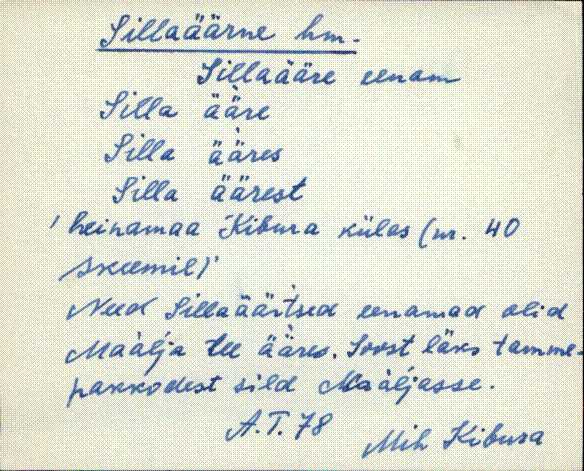 Sillaäärne hm.
Sillaääre eenam
Silla ääre
Silla ääres
Silla äärest
'heinamaa Kibura külas (nr. 40
skeemil)'
Need Sillaäärtsed eenamad olid
Maàlja tee ääres. Soost läks tamme-
pakkodest sild Maàljasse.
A.T. 78
Mih Kibura